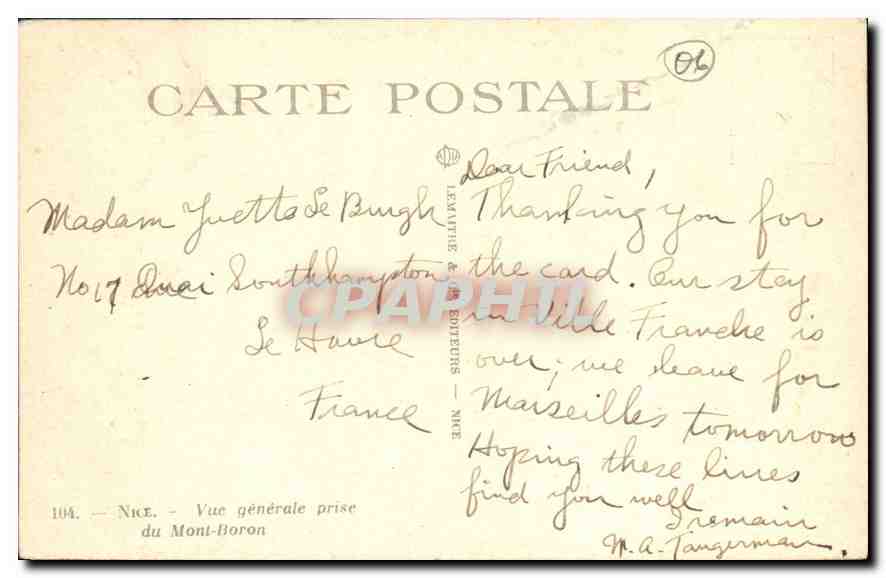 06
CARTE POSTALE
Madam Yvetta Le Burgh
No 17 Quai Southhampton
Le Havre
France
104. — NICE. - Vue générale prise
du Mont-Boron
LEMAITRE & Cie EDITEURS — NICE
Dear Friend,
Thanking you for
the card. Our stay
in Ville Franche is
over; we leave for
Marseilles tomorrow
Hoping these lines
find you well
I remain
M. A. Tangerman.
CPAPHIL